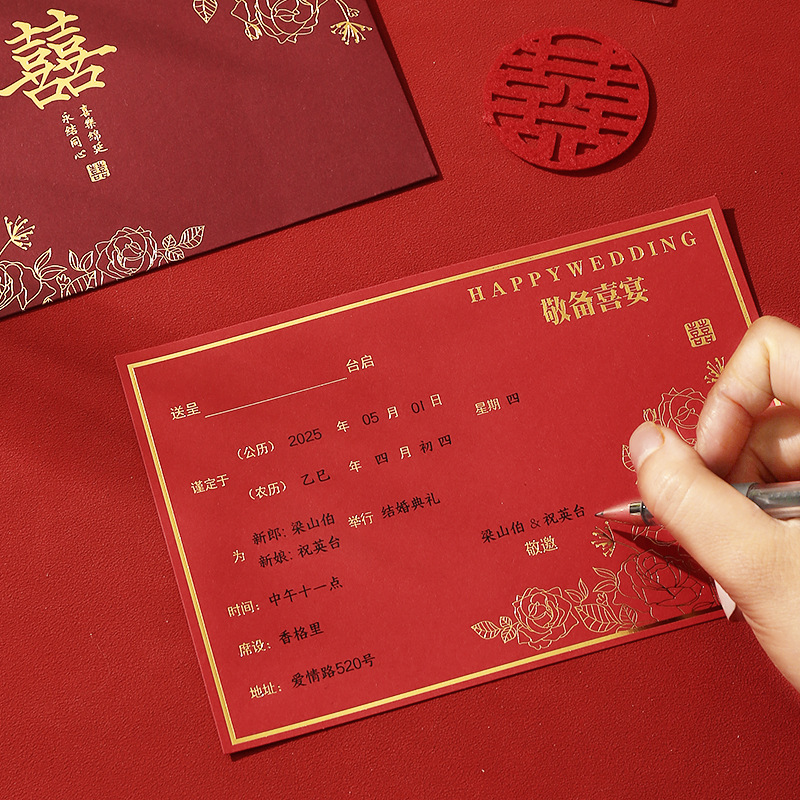 囍
喜樂綿延
永結同心
囍
囍
HAPPYWEDDING
敬备喜宴
囍
送呈 台启
谨定于
(公历) 2025 年 05 月 01 日 星期 四
(农历) 乙巳 年 四 月 初四
为
新郎: 梁山伯
新娘: 祝英台
举行 结婚典礼
梁山伯 & 祝英台
敬邀
时间: 中午十一点
席设: 香格里
地址: 爱情路520号